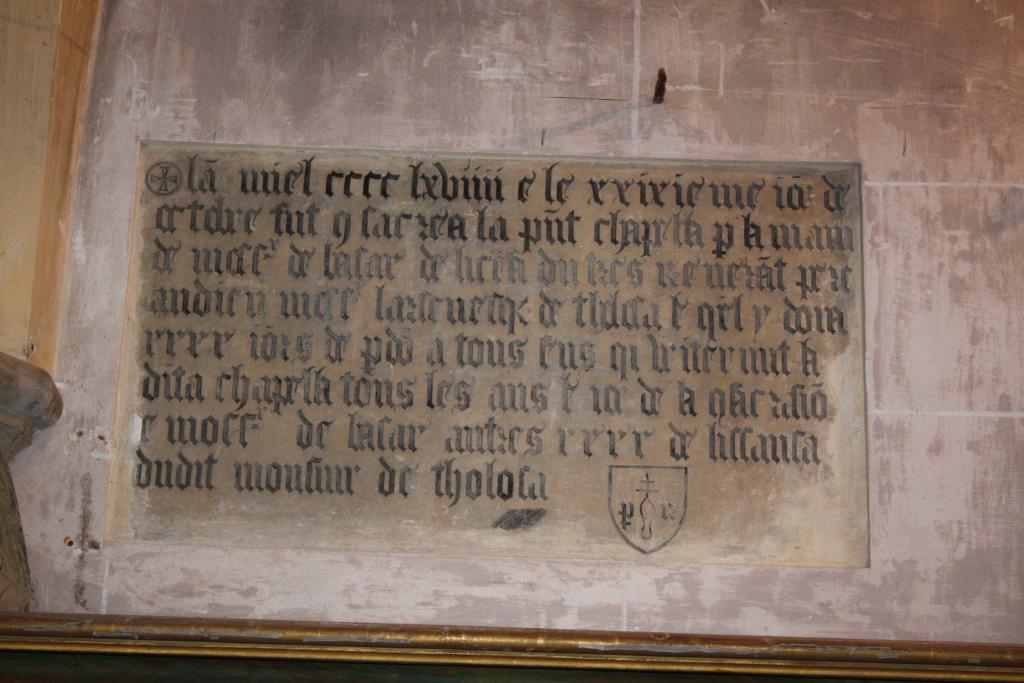 lã miel cccc lxviiii e le xxixieme ior de
octobre fut 9 sacrea la pñt chapela p la main
de mossr de basar de licẽsa du tres reverãt pere
audieu mossr larsevesqe de tholosa e qel y dona
xxxx iors de pdõ a tous seus qi visiteront la
dita chapela tous les ans e ior de la 9sacrasiõ
e mossr de basar autres xxxx de lissansa
dudit monsiur de tholosa
p r